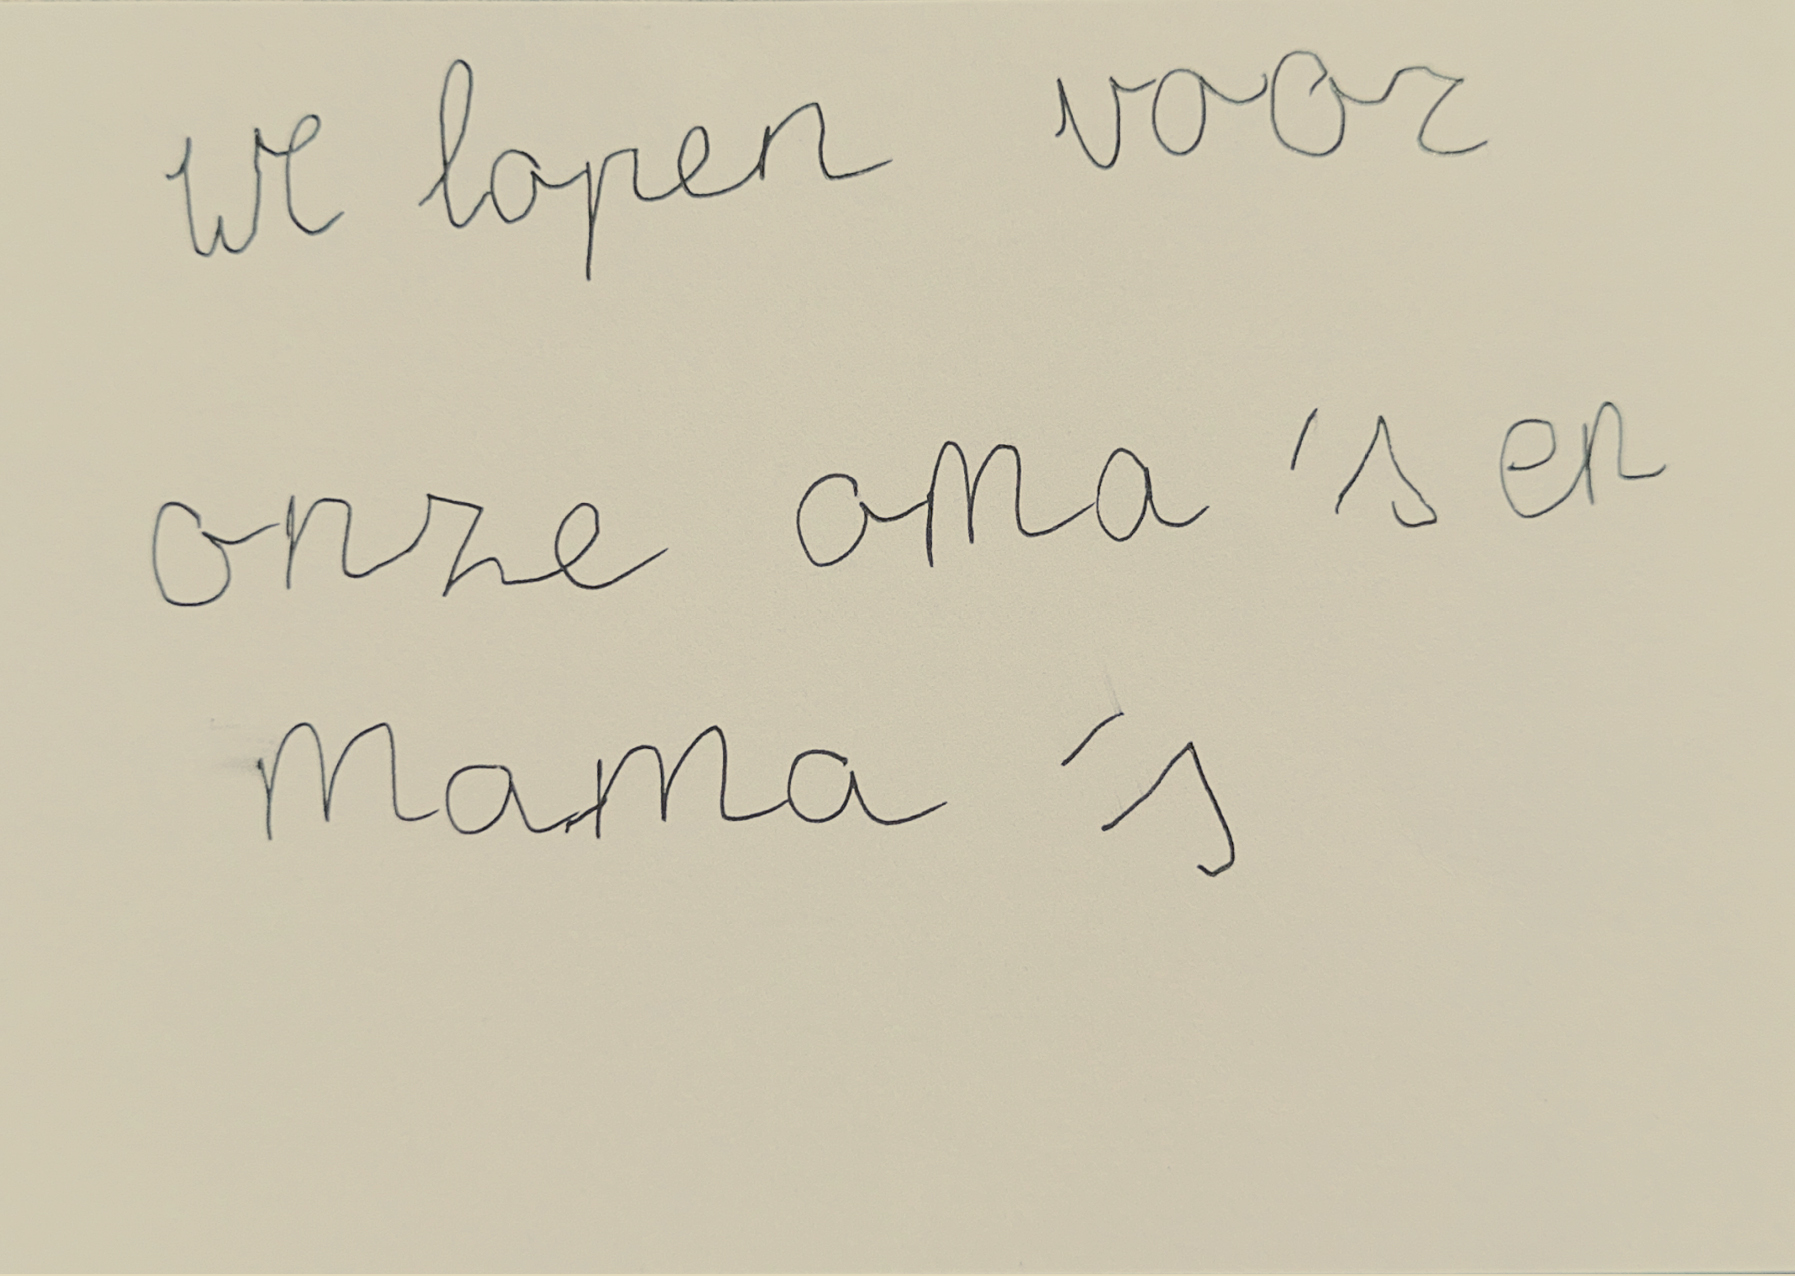 we lopen voor
onze oma's en
mama's